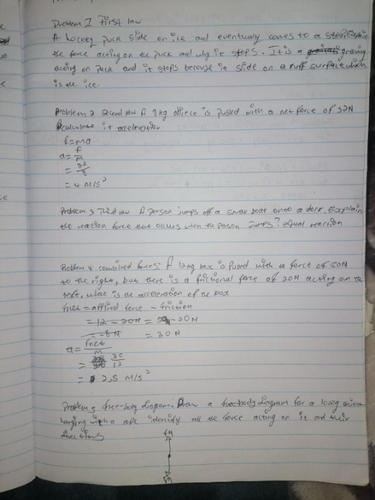 Problem 1 First law
A hockey puck slide on ice and eventually comes to a stop
the force acting on the puck and why it stops. It is a gravity
acting on puck and it stops because it slide on a ruff surface which
is the ice.
Problem 2 Second law A 8kg object is pushed with a net force of 32N
calculate it acceleration
f=ma
a=F/m
=32/8
=4 M/S²
Problem 3 Third law A person jumps off a small boat onto a dock. Explain
the reaction force that occurs when the person jumps? equal reaction
Problem 4 combined forces A 12kg box is pushed with a force of 50N
to the right, but there is a frictional force of 20N acting on the
left, what is the acceleration of the box
fnet = applied force - friction
= 30N
a= fnet/m
= 30/12
= 2,5 M/S²
Problem 5 free-body diagram. Draw a free body diagram for a
hanging with a rope identify all the force acting on it and their
directions